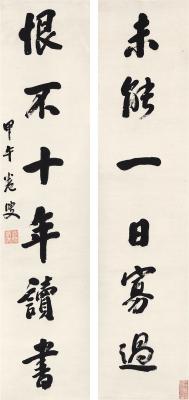 未能一日寡過
恨不十年讀書
甲午老叟